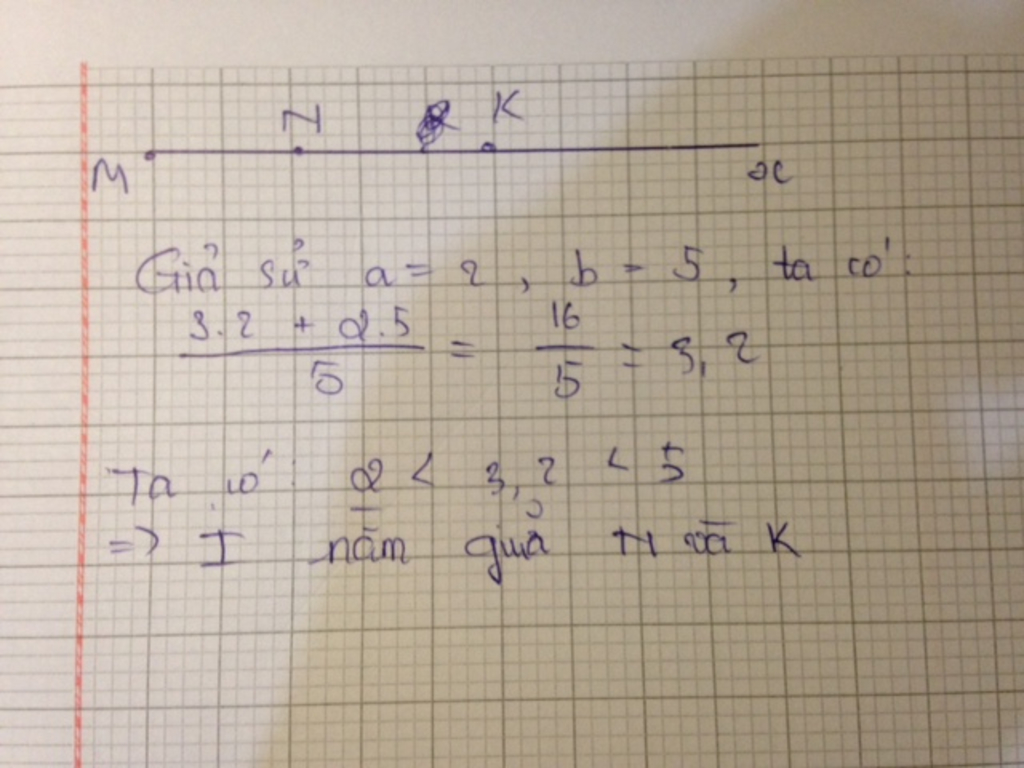 N K
M x
Giả sử a = 2 , b = 5 , ta có :
3.2 + 2.5 / 5 = 16 / 5 = 3,2
Ta có : 2 < 3,2 < 5
=> I nằm giữa N và K